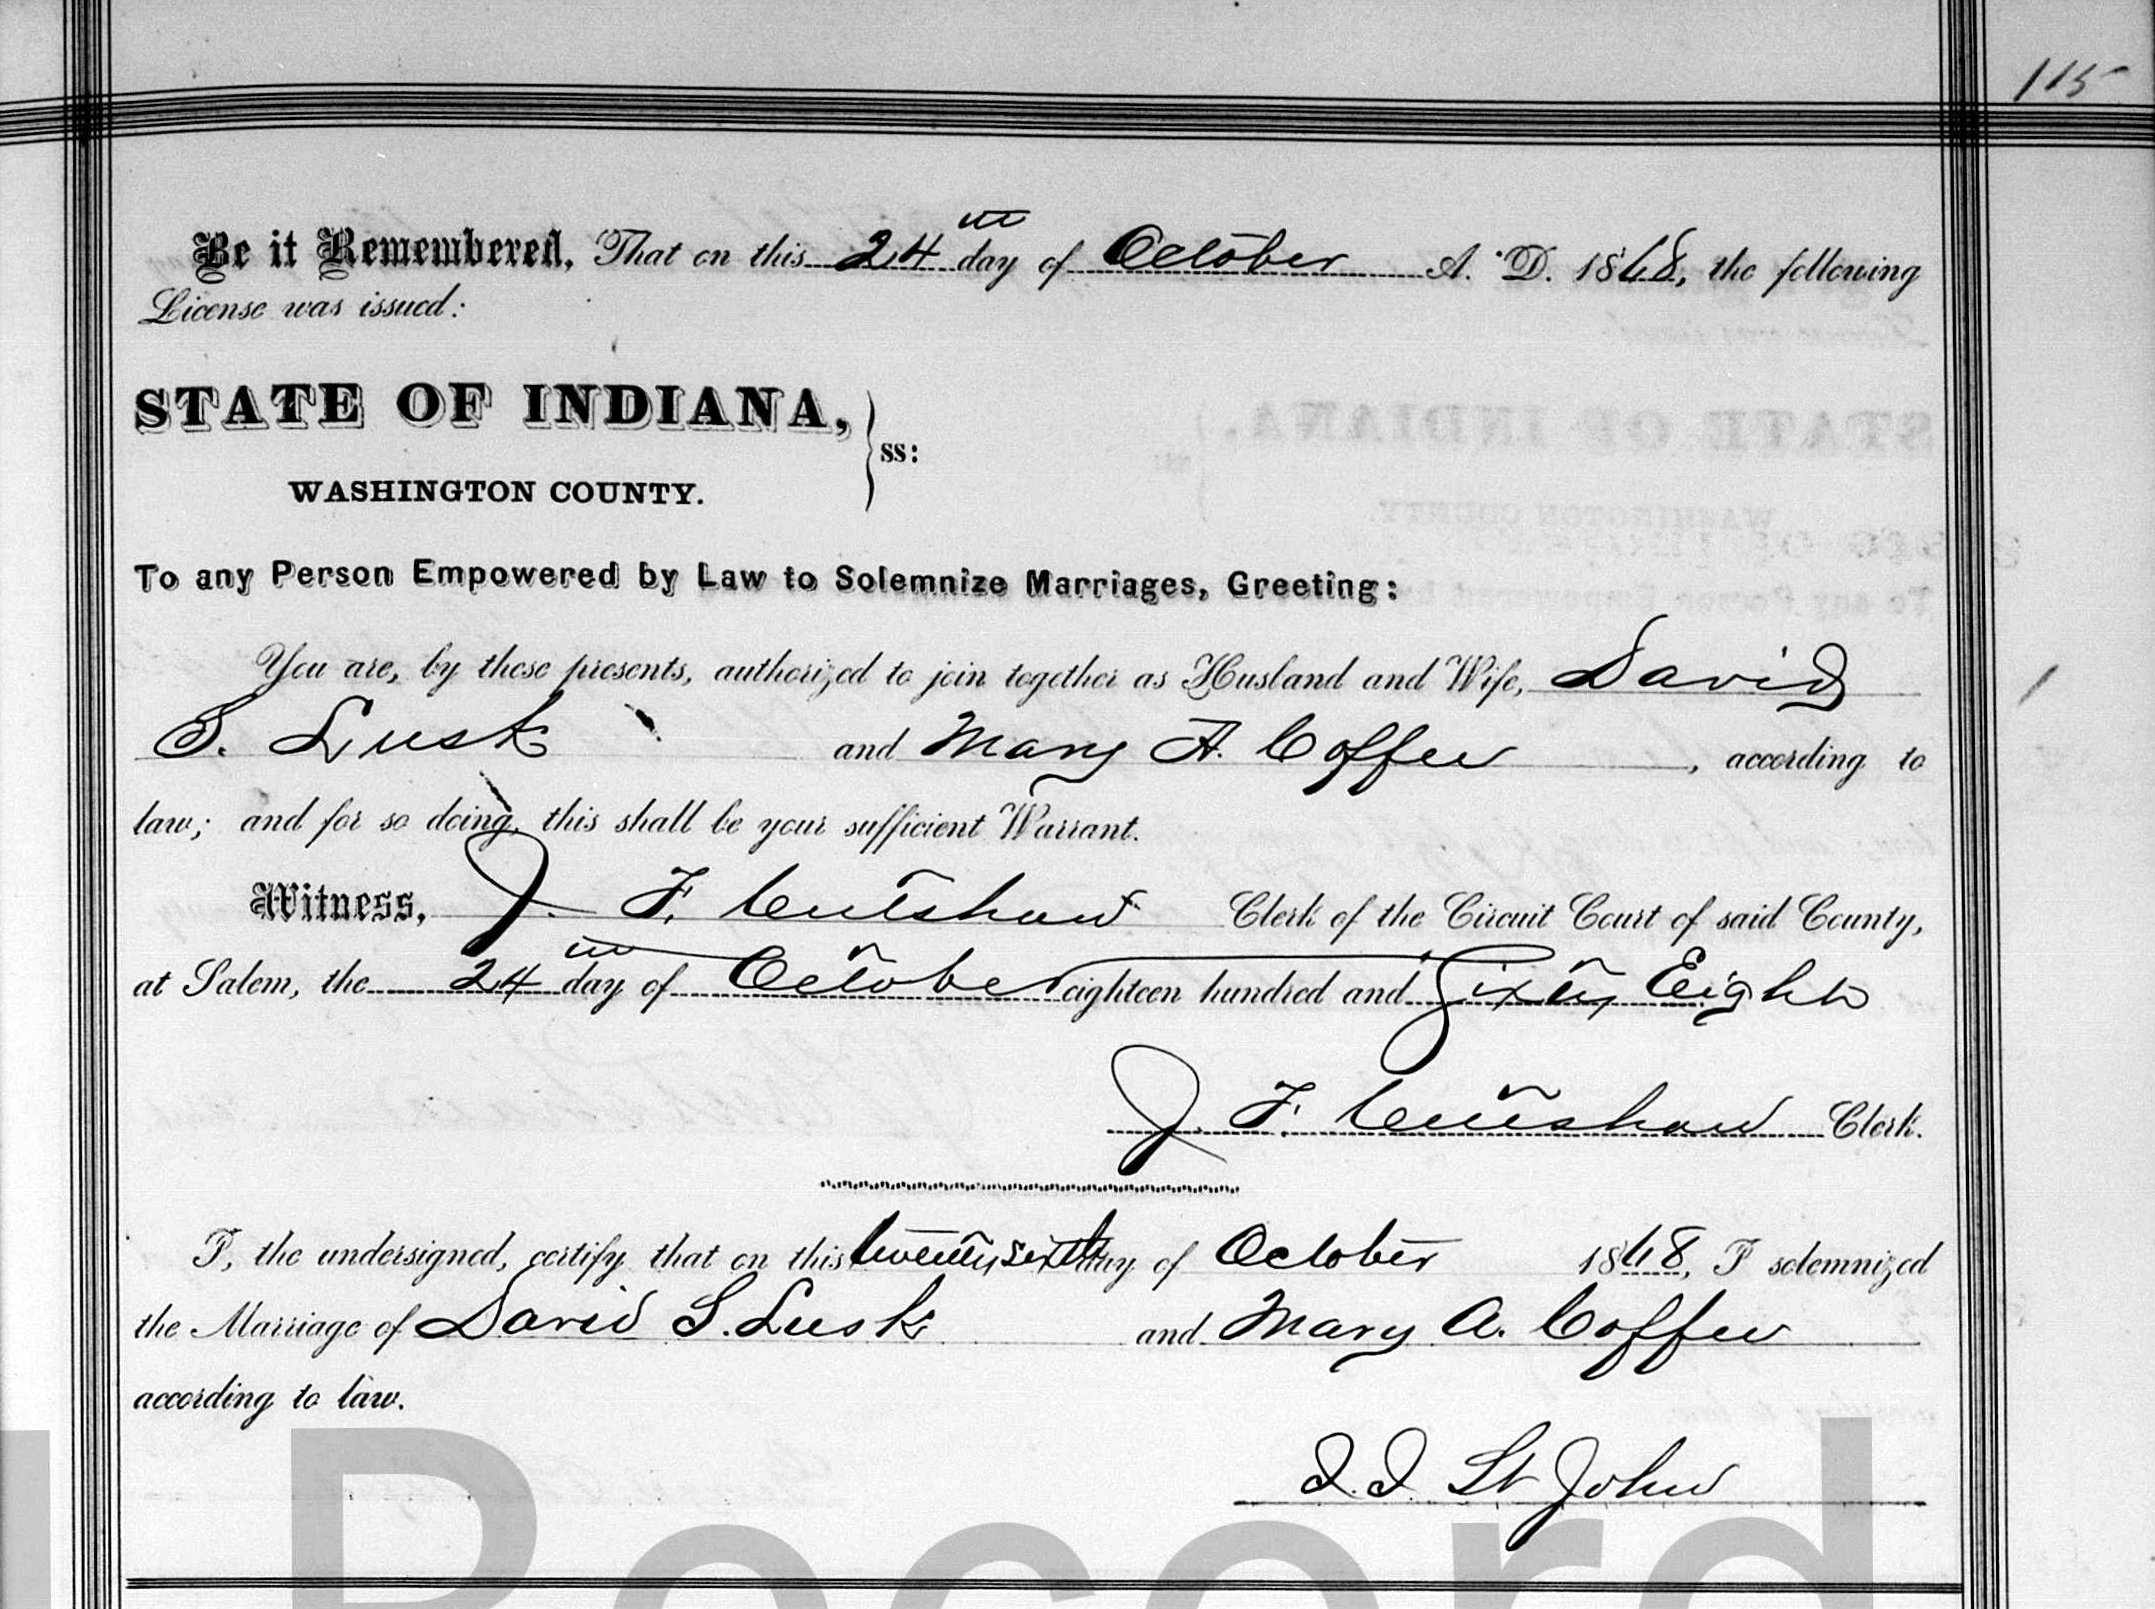 115
Be it Remembered, That on this 24th day of October A. D. 1868, the following
License was issued:
STATE OF INDIANA,
ss:
WASHINGTON COUNTY.
To any Person Empowered by Law to Solemnize Marriages, Greeting:
You are, by these presents, authorized to join together as Husband and Wife, David
S. Lusk and Mary A. Coffee, according to
law; and for so doing, this shall be your sufficient Warrant.
Witness, J. F. Cutshaw Clerk of the Circuit Court of said County,
at Salem, the 24th day of October eighteen hundred and Sixty Eight
J. F. Cutshaw Clerk.
I, the undersigned, certify that on this twenty sixth day of October 1868, I solemnized
the Marriage of David S. Lusk and Mary A. Coffee
according to law.
St John
Record